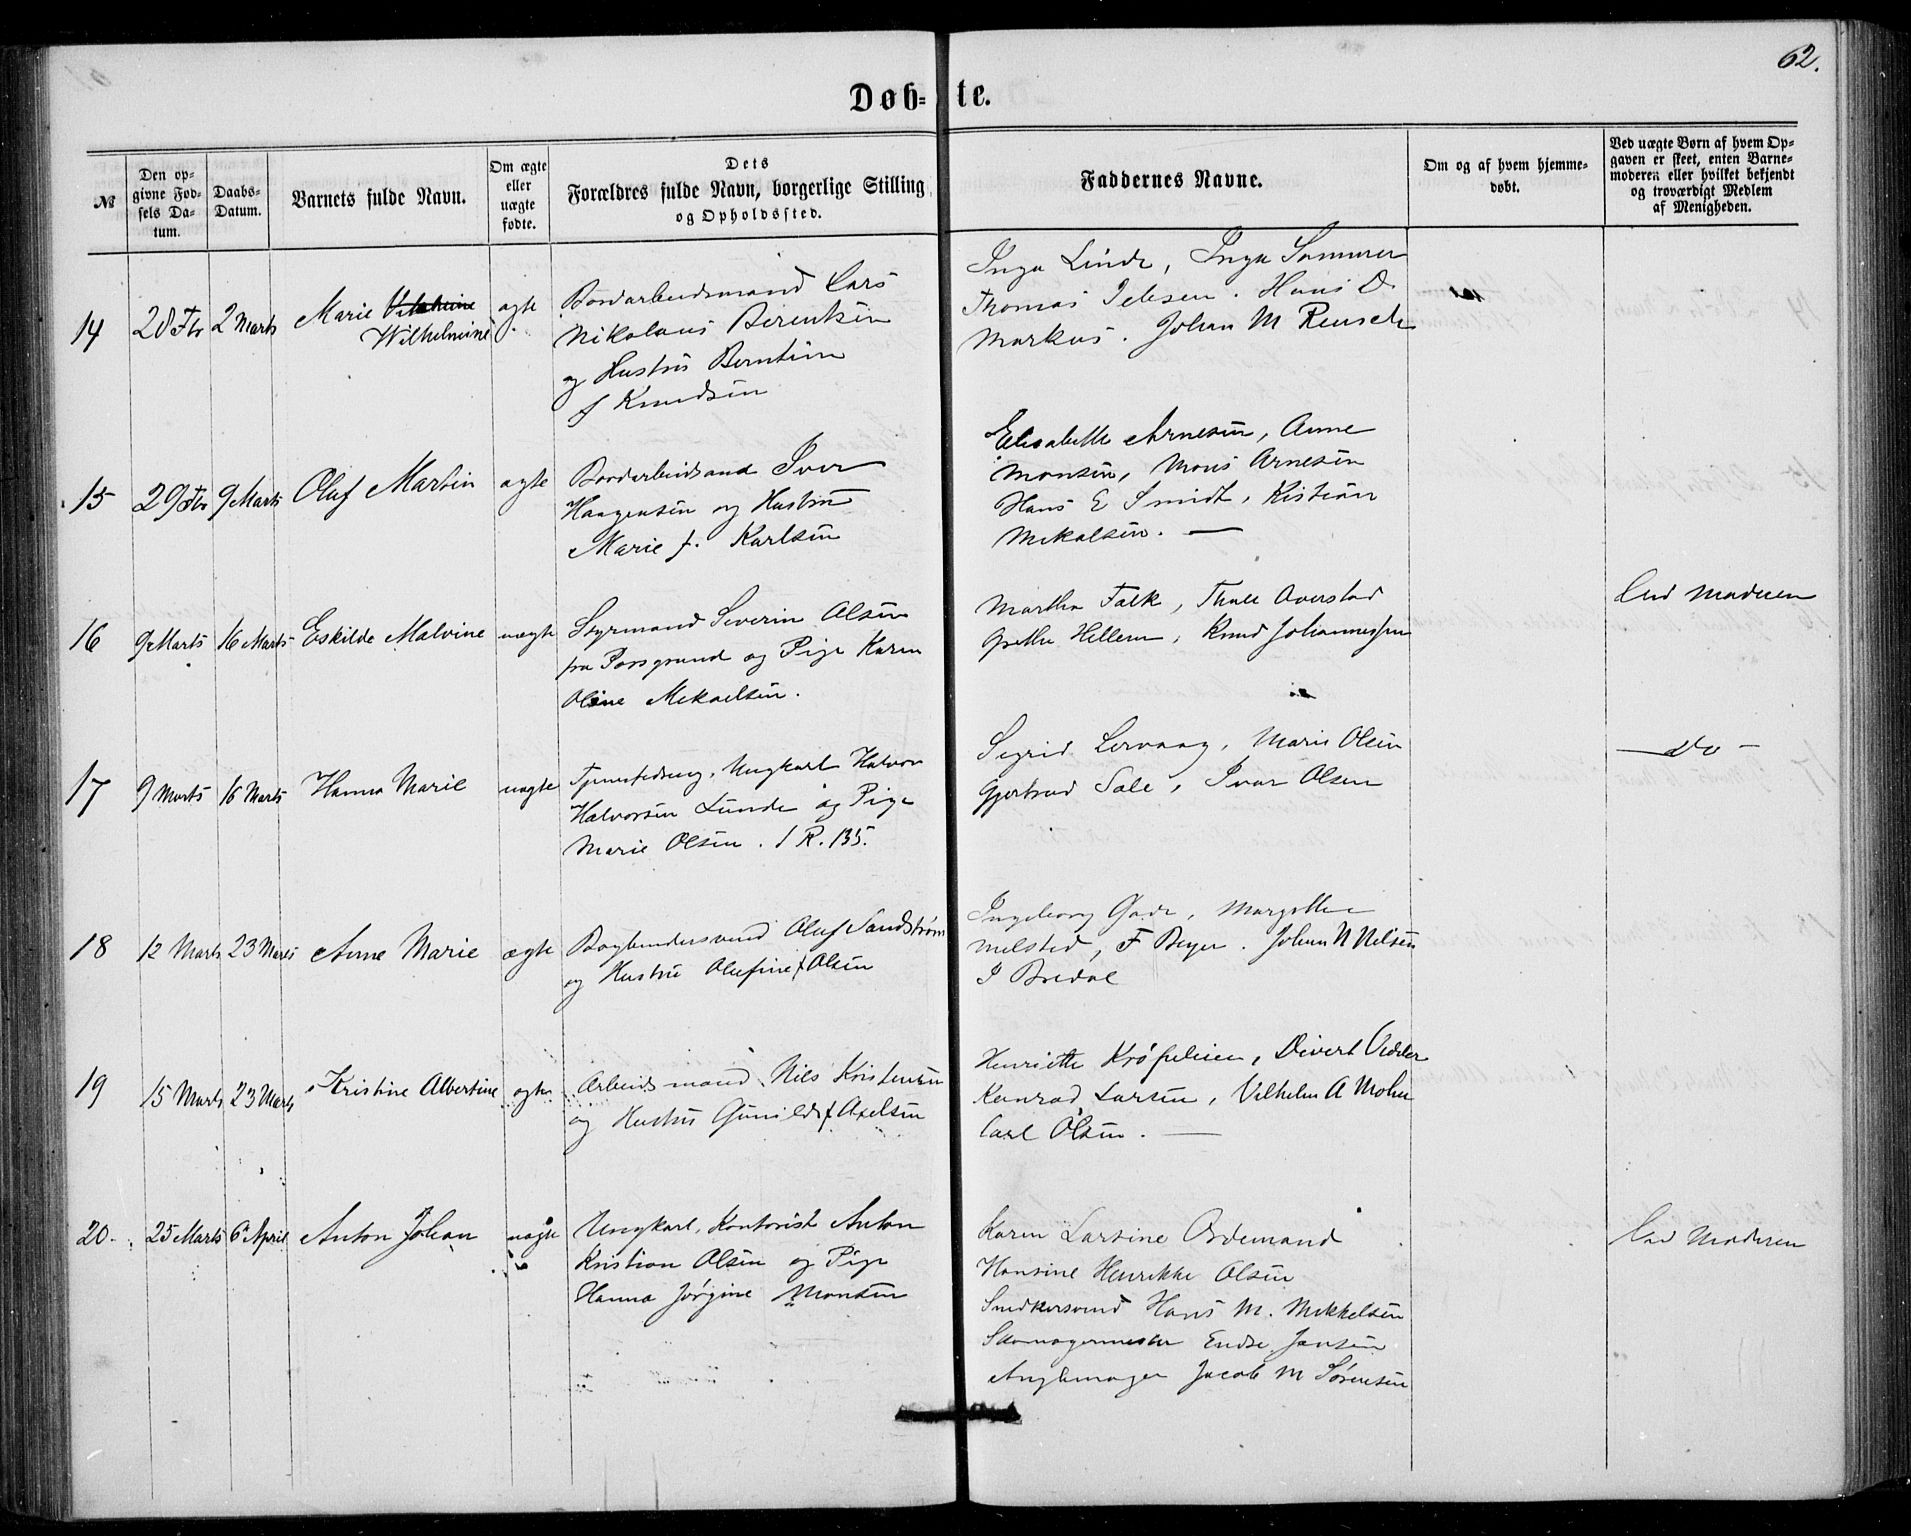 62.
Døb-te.
№
Den op-
givne Fød-
sels Da-
tum.
Daabs-
Datum.
Barnets fulde Navn.
Om ægte
eller
uægte
fødte.
Dets
Forældres fulde Navn, borgerlige Stilling
og Opholdssted.
Faddernes Navne.
Om og af hvem hjemme-
døbt.
Ved uægte Børn af hvem Op-
gaven er skeet, enten Barne-
moderen eller hvilket bekjendt
og troværdigt Medlem
af Menigheden.
14 28 Fbr 2 Marts Marie
Wilhelmine
ægte
Bordarbeidsmand Lars
Nikolaus Berentsen
og Hustru Berntine
f Knudsen
Inga Linde, Inga Sommer
Thomas Hans D
Markus. Johan M Reusch
15 29 Fbr 9 Marts Oluf Martin ægte
Iver
Haagensen og Hustru
Marie f. Karlsen
Elisabeth Arnesen, Anne
Monsen, Mons Arnesen
Hans E Smidt, Kistian
Mekalsen. —
16 9 Marts 16 Marts Eskilde Malvine uægte
Styrmand Severin Olsen
fra Porsgrund og Pige Karen
Oline Mekaelsen.
Martha Falk, Thale Overstad
Grethe Hillern, Knud Johannessen
Ved Moderen
17 9 Marts 16 Marts Hanna Marie uægte
Ungkarl Halvor
Halvorsen Lunde og Pige
Marie Olsen. 1 R. 135.
Sigrid Lervaag, Marie Olsen
Gjertrud Sale, Ivar Olsen
— do —
18 12 Marts 23 Marts Anne Marie ægte
Bogbindersvend Oluf Sandstrøm
og Hustru Olufine f Olsen
Ingeborg Gade, Margrethe
Milsted, F Beyer. Johan N Nilsen
I Bredal
19 15 Marts 23 Marts Kristine Albertine ægte
Arbeidsmand Nils Kristensen
og Hustru Gunild f Axelsen
Henriette Krøpelien, Divert Vedeler
Konrad Larsen, Vilhelm A Mohn
Carl Olsen. —
20. 25 Marts 6 April Anton Johan uægte
Ungkarl, Kontorist Anton
Kristian Olsen og Pige
Hanna Jørgine Monsen
Karen Larsine Ordemand
Hansine Henrikke Olsen
Snedkersvend Hans M. Mikkelsen
Skomagermester Endre Jansen
Jacob M Sørensen
Ved Moderen